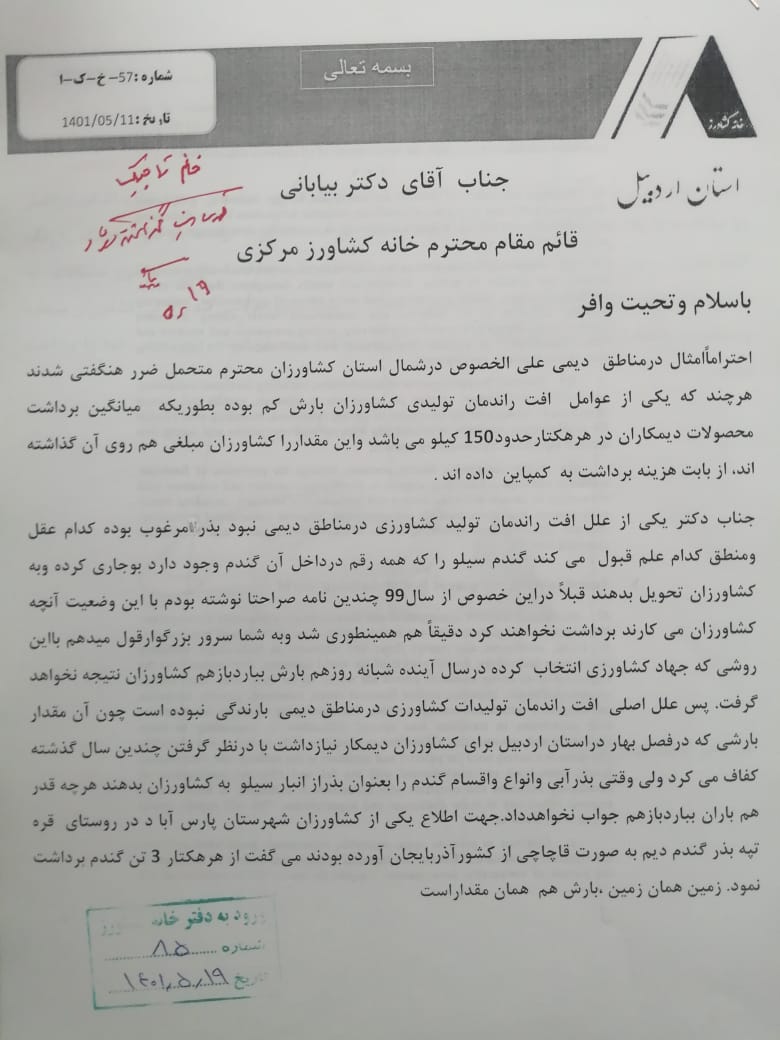 بسمه تعالی
شماره :57- خ-ک-ا
تاریخ: 1401/05/11
خانه کشاورز
استان اردبیل
جناب آقای دکتر بیابانی
قائم مقام محترم خانه کشاورز مرکزی
باسلام وتحیت وافر
خانم تاجیک
۵/۱۹
احتراماًامثال درمناطق دیمی علی الخصوص درشمال استان کشاورزان محترم متحمل ضرر هنگفتی شدند
هرچند که یکی از عوامل افت راندمان تولیدی کشاورزان بارش کم بوده بطوریکه میانگین برداشت
محصولات دیمکاران در هرهکتارحدود150 کیلو می باشد واین مقداررا کشاورزان مبلغی هم روی آن گذاشته
اند، از بابت هزینه برداشت به کمپاین داده اند .
جناب دکتر یکی از علل افت راندمان تولید کشاورزی درمناطق دیمی نبود بذرنامرغوب بوده کدام عقل
ومنطق کدام علم قبول می کند گندم سیلو را که همه رقم درداخل آن گندم وجود دارد بوجاری کرده وبه
کشاورزان تحویل بدهند قبلاً دراین خصوص از سال99 چندین نامه صراحتا نوشته بودم با این وضعیت آنچه
کشاورزان می کارند برداشت نخواهند کرد دقیقاً هم همینطوری شد وبه شما سرور بزرگوارقول میدهم بااین
روشی که جهاد کشاورزی انتخاب کرده درسال آینده شبانه روزهم بارش بباردبازهم کشاورزان نتیجه نخواهد
گرفت. پس علل اصلی افت راندمان تولیدات کشاورزی درمناطق دیمی بارندگی نبوده است چون آن مقدار
بارشی که درفصل بهار دراستان اردبیل برای کشاورزان دیمکار نیازداشت با درنظر گرفتن چندین سال گذشته
کفاف می کرد ولی وقتی بذرآبی وانواع واقسام گندم را بعنوان بذراز انبار سیلو به کشاورزان بدهند هرچه قدر
هم باران بباردبازهم جواب نخواهدداد.جهت اطلاع یکی از کشاورزان شهرستان پارس آبا د در روستای قره
تپه بذر گندم دیم به صورت قاچاچی از کشورآذربایجان آورده بودند می گفت از هرهکتار 3 تن گندم برداشت
نمود. زمین همان زمین ،بارش هم همان مقداراست
ورود به دفتر خانه کشاورز
شماره ۸۵
تاریخ ۱۴۰۱/۵/۱۹